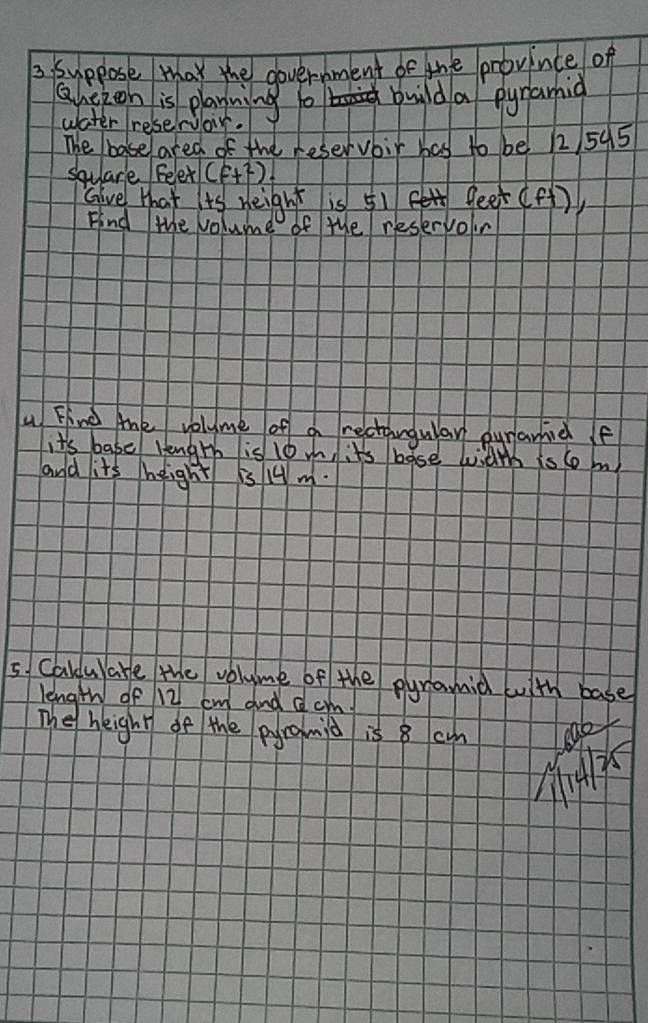 3. Suppose that the government of the province of
Quezon is planning to build a pyramid
water reservoir.
The base area of the reservoir has to be 12,545
square feet (ft²).
Give that its height is 51 feet (ft),
Find the volume of the reservoir
4. Find the volume of a rectangular pyramid if
its base length is 10 m, its base width is 6 m,
and its height is 14 m.
5. Calculate the volume of the pyramid with base
length of 12 cm and cm.
The height of the pyramid is 8 cm
11/14/25